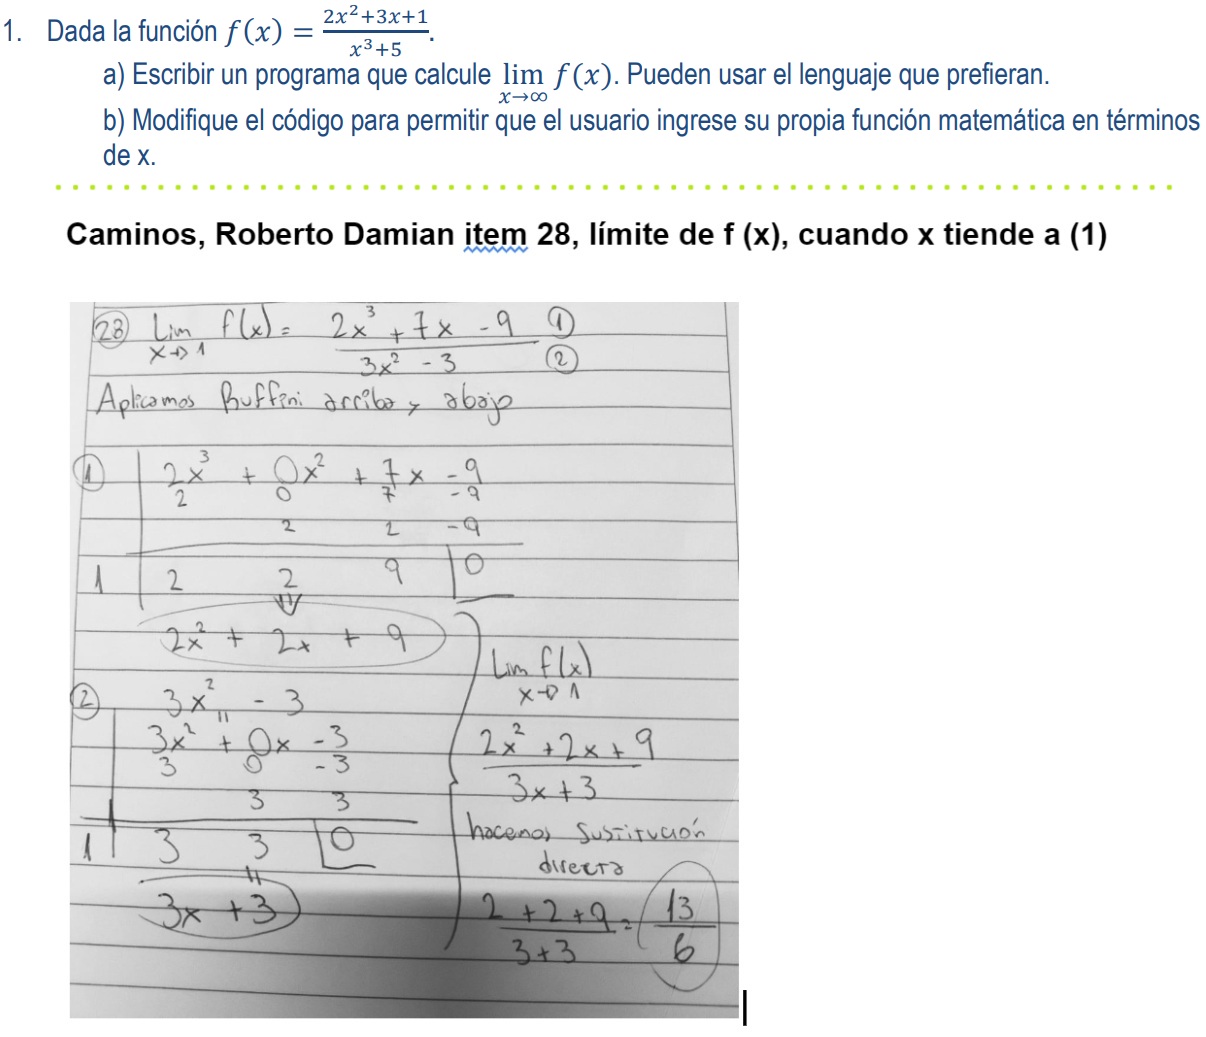 1. Dada la función f(x) = (2x²+3x+1)/(x³+5).
a) Escribir un programa que calcule lim x→∞ f(x). Pueden usar el lenguaje que prefieran.
b) Modifique el código para permitir que el usuario ingrese su propia función matemática en términos
de x.
Caminos, Roberto Damian item 28, límite de f (x), cuando x tiende a (1)
28 Lim f(x) = 2x³ + 7x - 9 ①
x→1 3x² - 3 ②
Aplicamos Ruffini arriba y abajo
① 2x³ + 0x² + 7x - 9
2 0 7 -9
2 2 -9
1 2 2 9 0
2x² + 2x + 9
② 3x² - 3
3x² + 0x - 3
3 0 -3
3 3
1 3 3 0
3x + 3
Lim f(x)
x→1
2x² + 2x + 9
3x + 3
hacemos Sustitución
directa
2 + 2 + 9 = 13
3 + 3 6